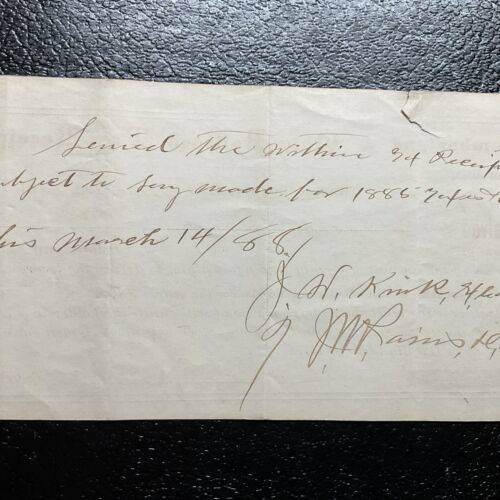 Levied the within Receip
ubject to Levy made for 1885 Taxes
his March 14/88.
J. W. Kirk,
By J. W. Rains, D,